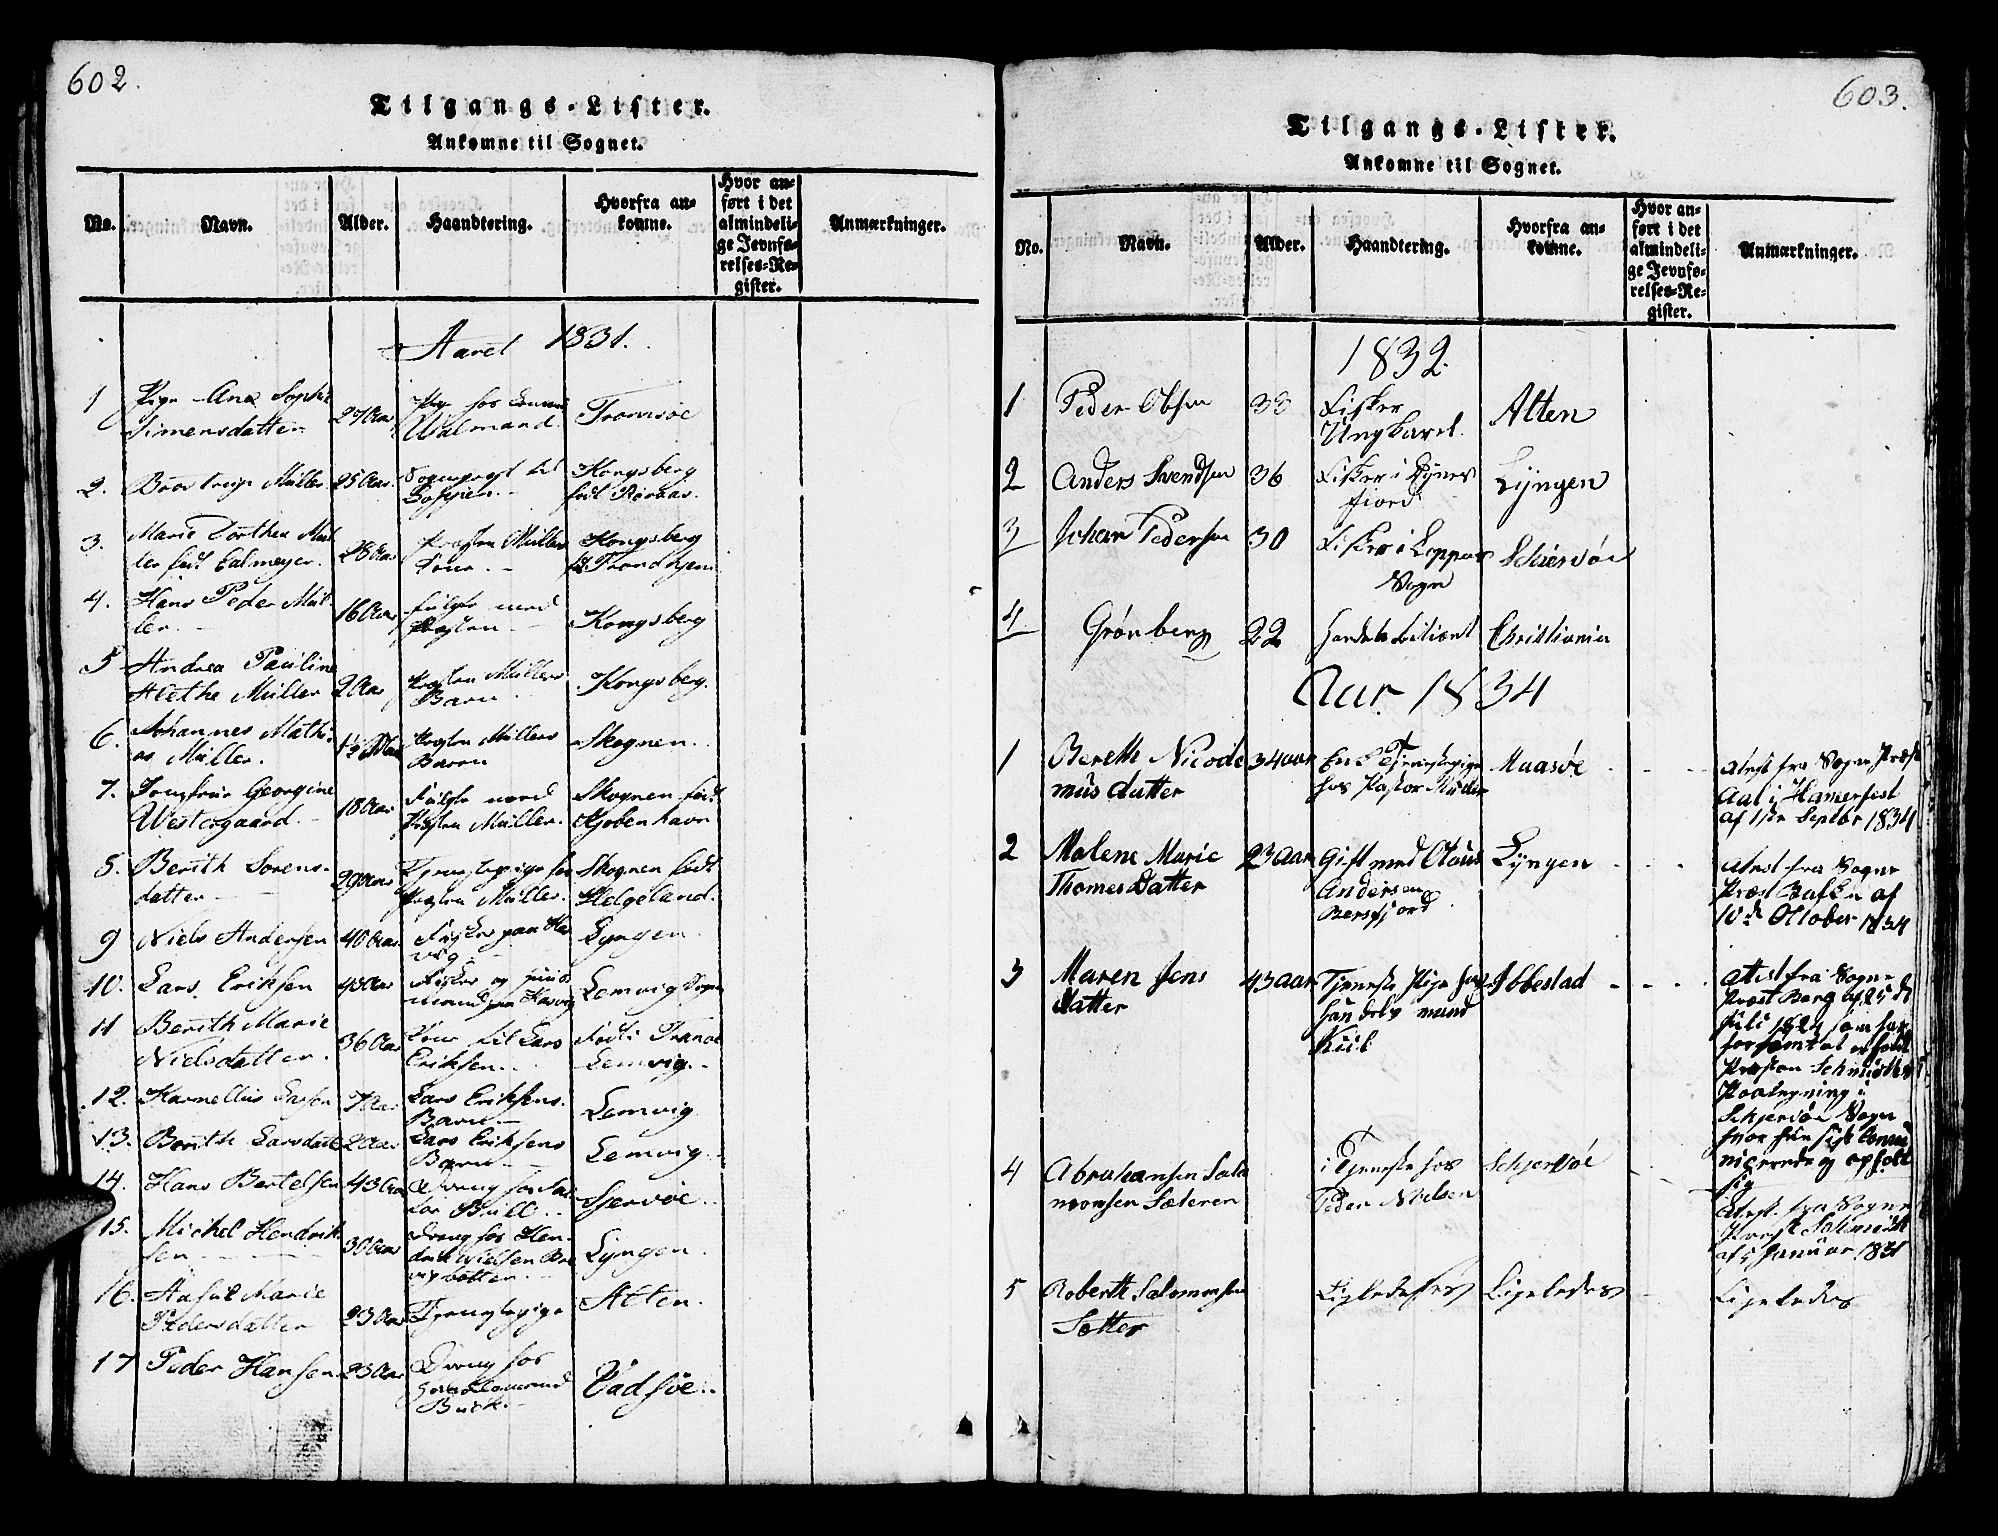 602.
Tilgangs-Lister.
Ankomne til Sognet.
No.
Navn.
Alder.
Haandtering.
Hvorfra an-
komne.
Hvor an-
ført i det
almindeli-
ge Jevnfø-
relses-Re-
gister.
Anmærkninger.
Aaret 1831.
1
Pige Ane Sophie
Simensdatter
27 Aar
Pige hos
Walmand
Tromsøe
2.
Müller
25 Aar
Sognepræst til
Loppen.
Kongsberg
født Røraas.
3.
Marie Dorthea Mül
ler født
28 Aar
Præsten Müllers
Kone.
Kongsberg
Trondhjem
4.
Hans Peder Mül-
ler.
16 Aar
følgte med
Præsten
Kongsberg
5
Andrea Pauline
Müller
2 Aar
Præsten Müllers
Barn
Kongsberg.
6.
Johannes Mathi-
as Müller.
Præsten Müllers
Barn
Skognen.
7.
Jomfrue Georgine
Westergaard.
18 Aar
Følgte med
Præsten Müller.
Skognen født
Kjøbenhavn
8.
Berith Sørens-
datter
29 Aar
Tjenestepige hos
Præsten Müller.
Skognen født
Helgeland.
9
Niels Andersen
40 Aar
Fisker paa Has
vig
Lyngen
10.
Lars Eriksen
43 Aar
Fisker og Huus
mand paa Hasvig
Lemvig Sogn
11
Berith Marie
Nielsdatter.
36 Aar
Kone til Lars
Eriksen.
Født i Tranøe
Lemvig.
12.
Karnellius Larsen
7 Aar
Lars Eriksens
Barn
Lemvig
13.
Berith Larsdatter
2 Aar
Lars Eriksens
Barn
Lemvig
14.
Hans Bertelsen
43 Aar
Dreng hos
Buck.
Skjervøe
15.
Mickel Hendrik
sen
30 Aar
Dreng hos Hen-
drik Nielsen
Lyngen
16.
Marie
Pedersdatter
23 Aar
Tjenestepige
Alten.
17
Peder Hansen
23 Aar
Dreng hos
Handelsmand
Buck.
Vadsøe
603.
Tilgangs-Lister.
Ankomne til Sognet.
No.
Navn.
Alder.
Haandtering.
Hvorfra an-
komne.
Hvor an-
ført i det
almindeli-
ge Jevnfø-
relses-Re-
gister.
Anmærkninger.
1832.
1
Peder Olsen
38
Fisker
Ungkarl.
Alten
2
Anders Svendsen
36
Fisker i
fiord
Lyngen
3
Johan Pedersen
30
Fisker i Loppens
Sogn
Schiervøe
4
Grønberg
22
Handels
Christiania
Aar 1834
1
Bereth Nicode
mus datter
34 aar
En Tjenestepige
hos Pastor Müller
Maasøe
atest fra Sogne Præst
Aal i Hamerfest
af 1ste Septbr 1834
2
Malene Marie
Thomes Datter
23 Aar
Gift med Olaus
Andersen
Bersfjord
Lyngen
atest fra Sogne
Præst Balke af
10de October 1834
3
Maren Jens
datter
43 Aar
Tjeneste Pige hos
Handelsmand
Kiil
Ibbestad
atest fra Sogne
Præst Berg af 25de
Juli som har
forsømt at
Præsten Schmidts
Paategning i
Schjervøe Sogn
hvor hun sidst
og opholdt
sig
4
Abrahamsen Salo
monsen Sæteren
i Tjeneste hos
Peder Nielsen
Schjervøe
Atest fra Sogne
Præst Schmidt
af 5 Januar 1831
5
Roberth Salomonsen
Sætter
Ligeledes
Ligeledes
Ligeledes